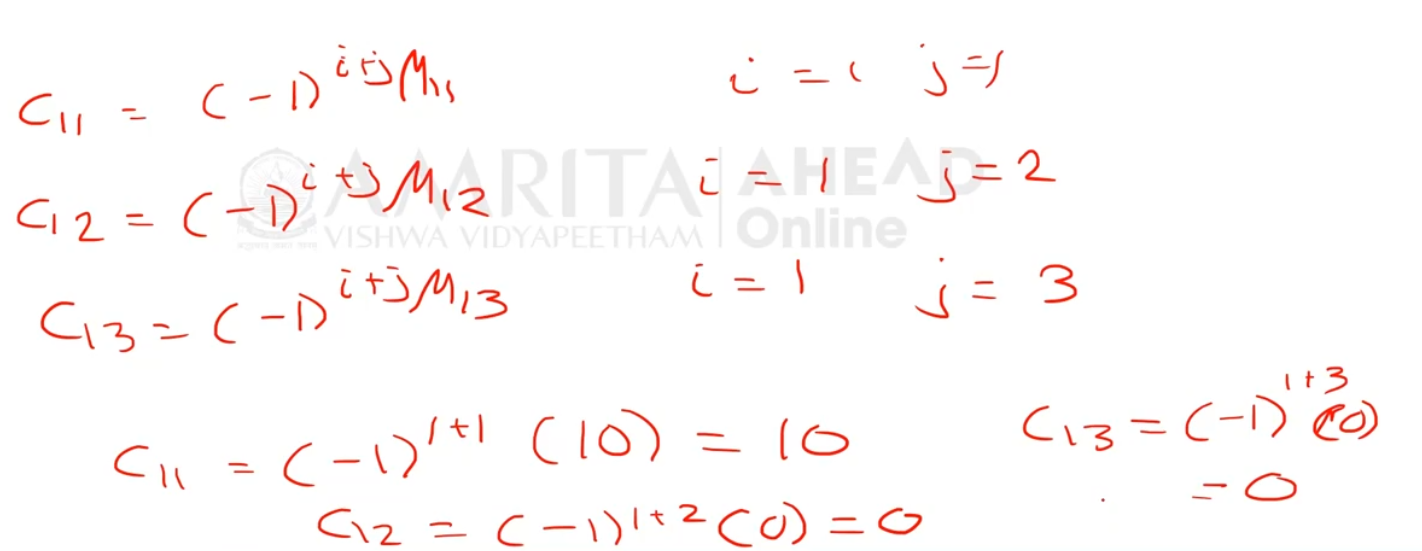 C₁₁ = (-1)^{i+j} M₁₁    i = 1    j = 1
C₁₂ = (-1)^{i+j} M₁₂    i = 1    j = 2
C₁₃ = (-1)^{i+j} M₁₃    i = 1    j = 3
AMRITA AHEAD
VISHWA VIDYAPEETHAM Online
C₁₁ = (-1)^{1+1} (10) = 10
C₁₂ = (-1)^{1+2} (0) = 0
C₁₃ = (-1)^{1+3} (0)
= 0